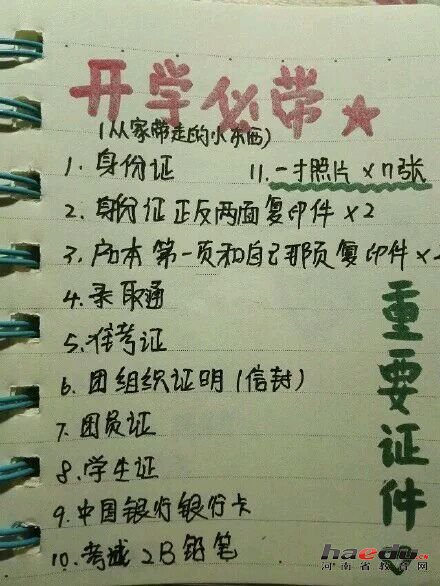 开学必带
(从家带走的小东西)
1.身份证
11.一寸照片×n张
2.身份证正反两面复印件×2
3.户本第一页和自己那页复印件×
4.录取通
5.准考证
6.团组织证明(信封)
7.团员证
8.学生证
9.中国银行银行卡
10.考试2B铅笔
重要证件
haedu.cn
河南省教育网